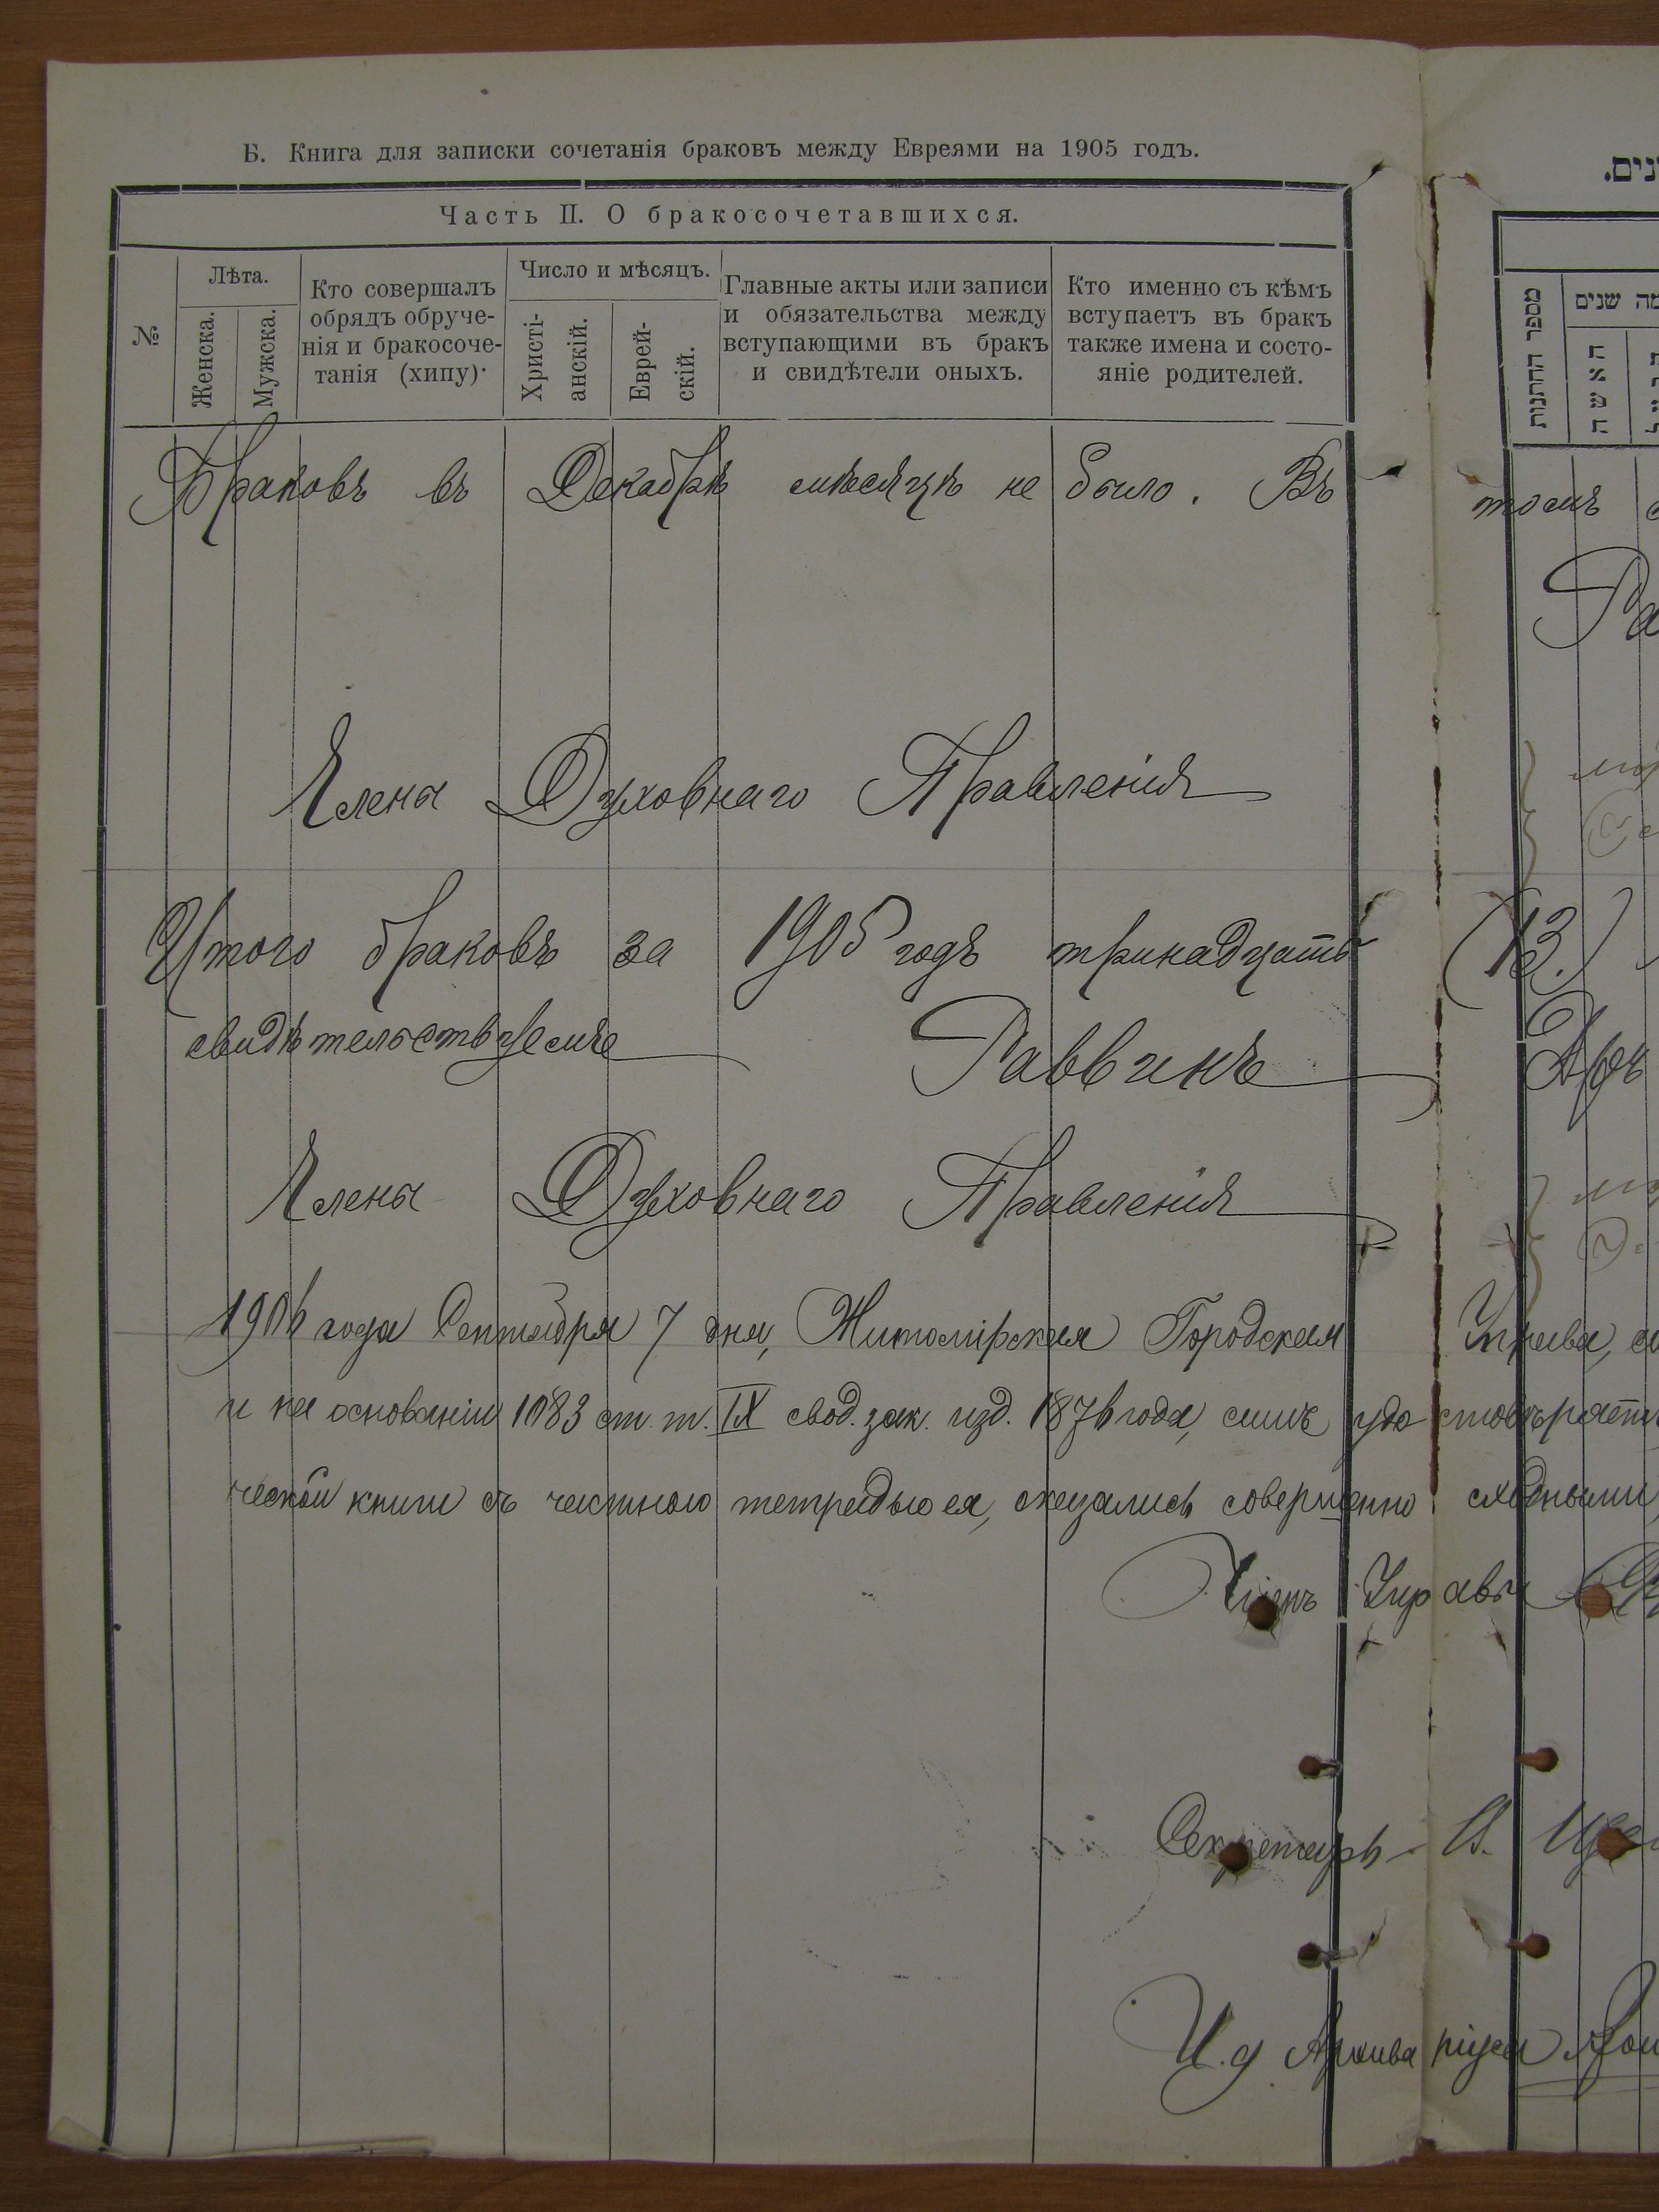 Б. Книга для записки сочетанія браковъ между Евреями на 1905 годъ.
נים.
Часть II. О бракосочетавшихся.
№
Лѣта.
Женска.
Мужска.
Кто совершалъ
обрядъ обруче-
нія и бракосоче-
танія (хипу).
Число и мѣсяцъ.
Христі-
анскій.
Еврей-
скій.
Главные акты или записи
и обязательства между
вступающими въ бракъ
и свидѣтели оныхъ.
Кто именно съ кѣмъ
вступаетъ въ бракъ
также имена и состо-
яніе родителей.
מספר החתנות
מה שנים
האשה
Браковъ въ Декабрѣ мѣсяцѣ не было. Въ томъ с
Ра
Члены Духовнаго Правленія
Итого браковъ за 1905 годъ тринадцать (13.)
свидѣтельствуемъ Раввинъ
Члены Духовнаго Правленія
1906 года Сентября 7 дня, Житомірская Городская Управа, св
и на основаніи 1083 ст. т. IX свод. зак. изд. 1876 года, симъ удостовѣряетъ
ческой книги съ частною тетрадью ея, оказались совершенно сходными,
Членъ Управы
Секретарь
И.д Архиваріуса